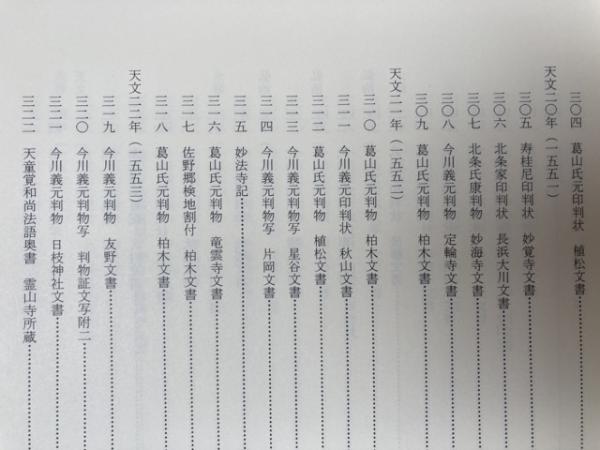 三〇四 葛山氏元印判状 植松文書
天文二〇年(一五五一)
三〇五 寿桂尼印判状 妙覚寺文書
三〇六 北条家印判状 長浜大川文書
三〇七 北条氏康判物 妙海寺文書
三〇八 今川義元判物 定輪寺文書
三〇九 葛山氏元判物 柏木文書
天文二一年(一五五二)
三一〇 葛山氏元判物 柏木文書
三一一 今川義元印判状 秋山文書
三一二 葛山氏元判物 植松文書
三一三 今川義元判物写 星谷文書
三一四 今川義元判物写 片岡文書
三一五 妙法寺記
三一六 葛山氏元判物 竜雲寺文書
三一七 佐野郷検地割付 柏木文書
三一八 葛山氏元判物 柏木文書
天文二二年(一五五三)
三一九 今川義元判物 友野文書
三二〇 今川義元判物写 判物証文写附二
三二一 今川義元判物 日枝神社文書
三二二 天童覚和尚法語奥書 霊山寺所蔵